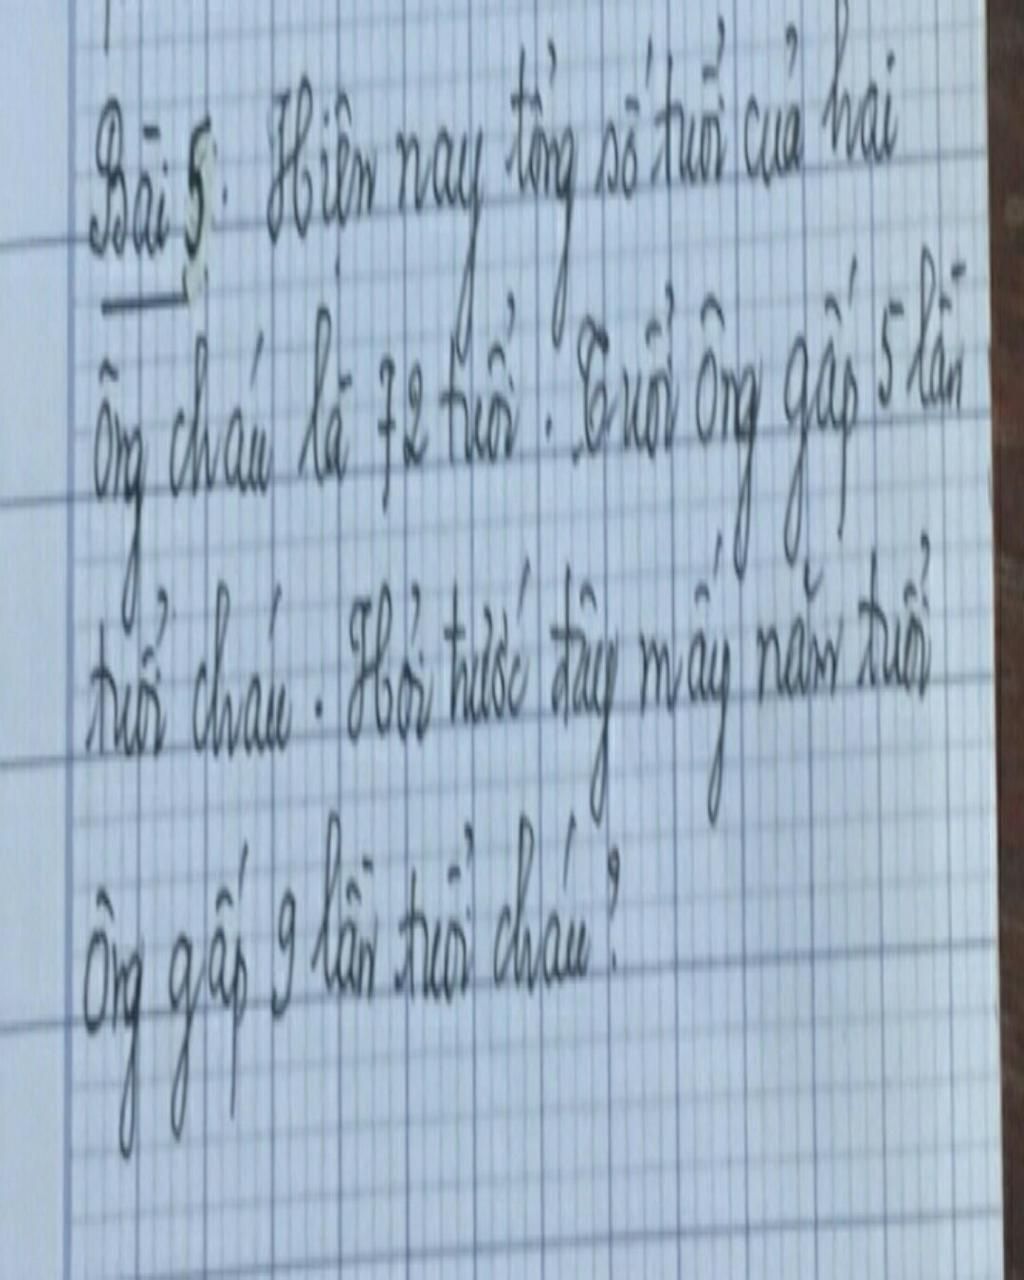 Bài 5. Hiện nay tổng số tuổi của hai
ông cháu là 72 tuổi. Tuổi ông gấp 5 lần
tuổi cháu. Hỏi trước đây mấy năm tuổi
ông gấp 9 lần tuổi cháu?